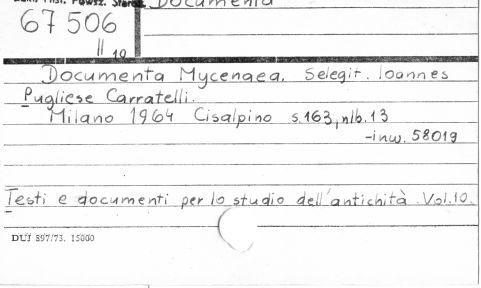 Documenta
67506
II 10
Documenta Mycenaea. Selegit. Ioannes
Pugliese Carratelli.
Milano 1964 Cisalpino s.163, nlb.13
-inw. 58019
Testi e documenti per lo studio dell'antichità. Vol.10.
DUJ 897/73. 15000